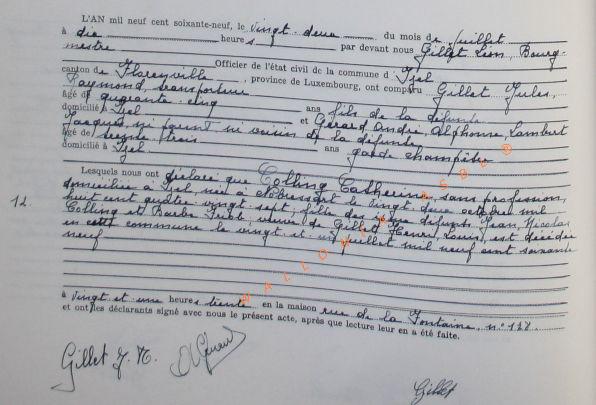 L'AN mil neuf cent soixante-neuf, le vingt-deux du mois de juillet
à dix heures par devant nous Gillet Léon, Bourg-
mestre
Officier de l'état civil de la commune d'Izel
canton de Florenville, province de Luxembourg, ont comparu Gillet Jules,
Raymond,
âgé de quarante cinq ans fils de la défunte
domicilié à Izel et Gérard André, Alphonse, Lambert
Jacques, ni parent ni voisin de la défunte
âgé de trente trois ans garde champêtre
domicilié à Izel
Lesquels nous ont déclaré que Colling Catherine, sans profession,
domiciliée à Izel, née à le vingt deux octobre mil
12. huit cent quatre vingt sept, fille des époux défunts Jean, Nicolas
Colling et Barbe veuve de Gillet Henri, Louis, est décédée
en cette commune le vingt et un juillet mil neuf cent soixante
neuf
à vingt et une heures trente en la maison rue de la Fontaine, n° 128.
et ont les déclarants signé avec nous le présent acte, après que lecture leur en a été faite.
Gillet J. R.
Gillet
WALLONIA ASBL ©